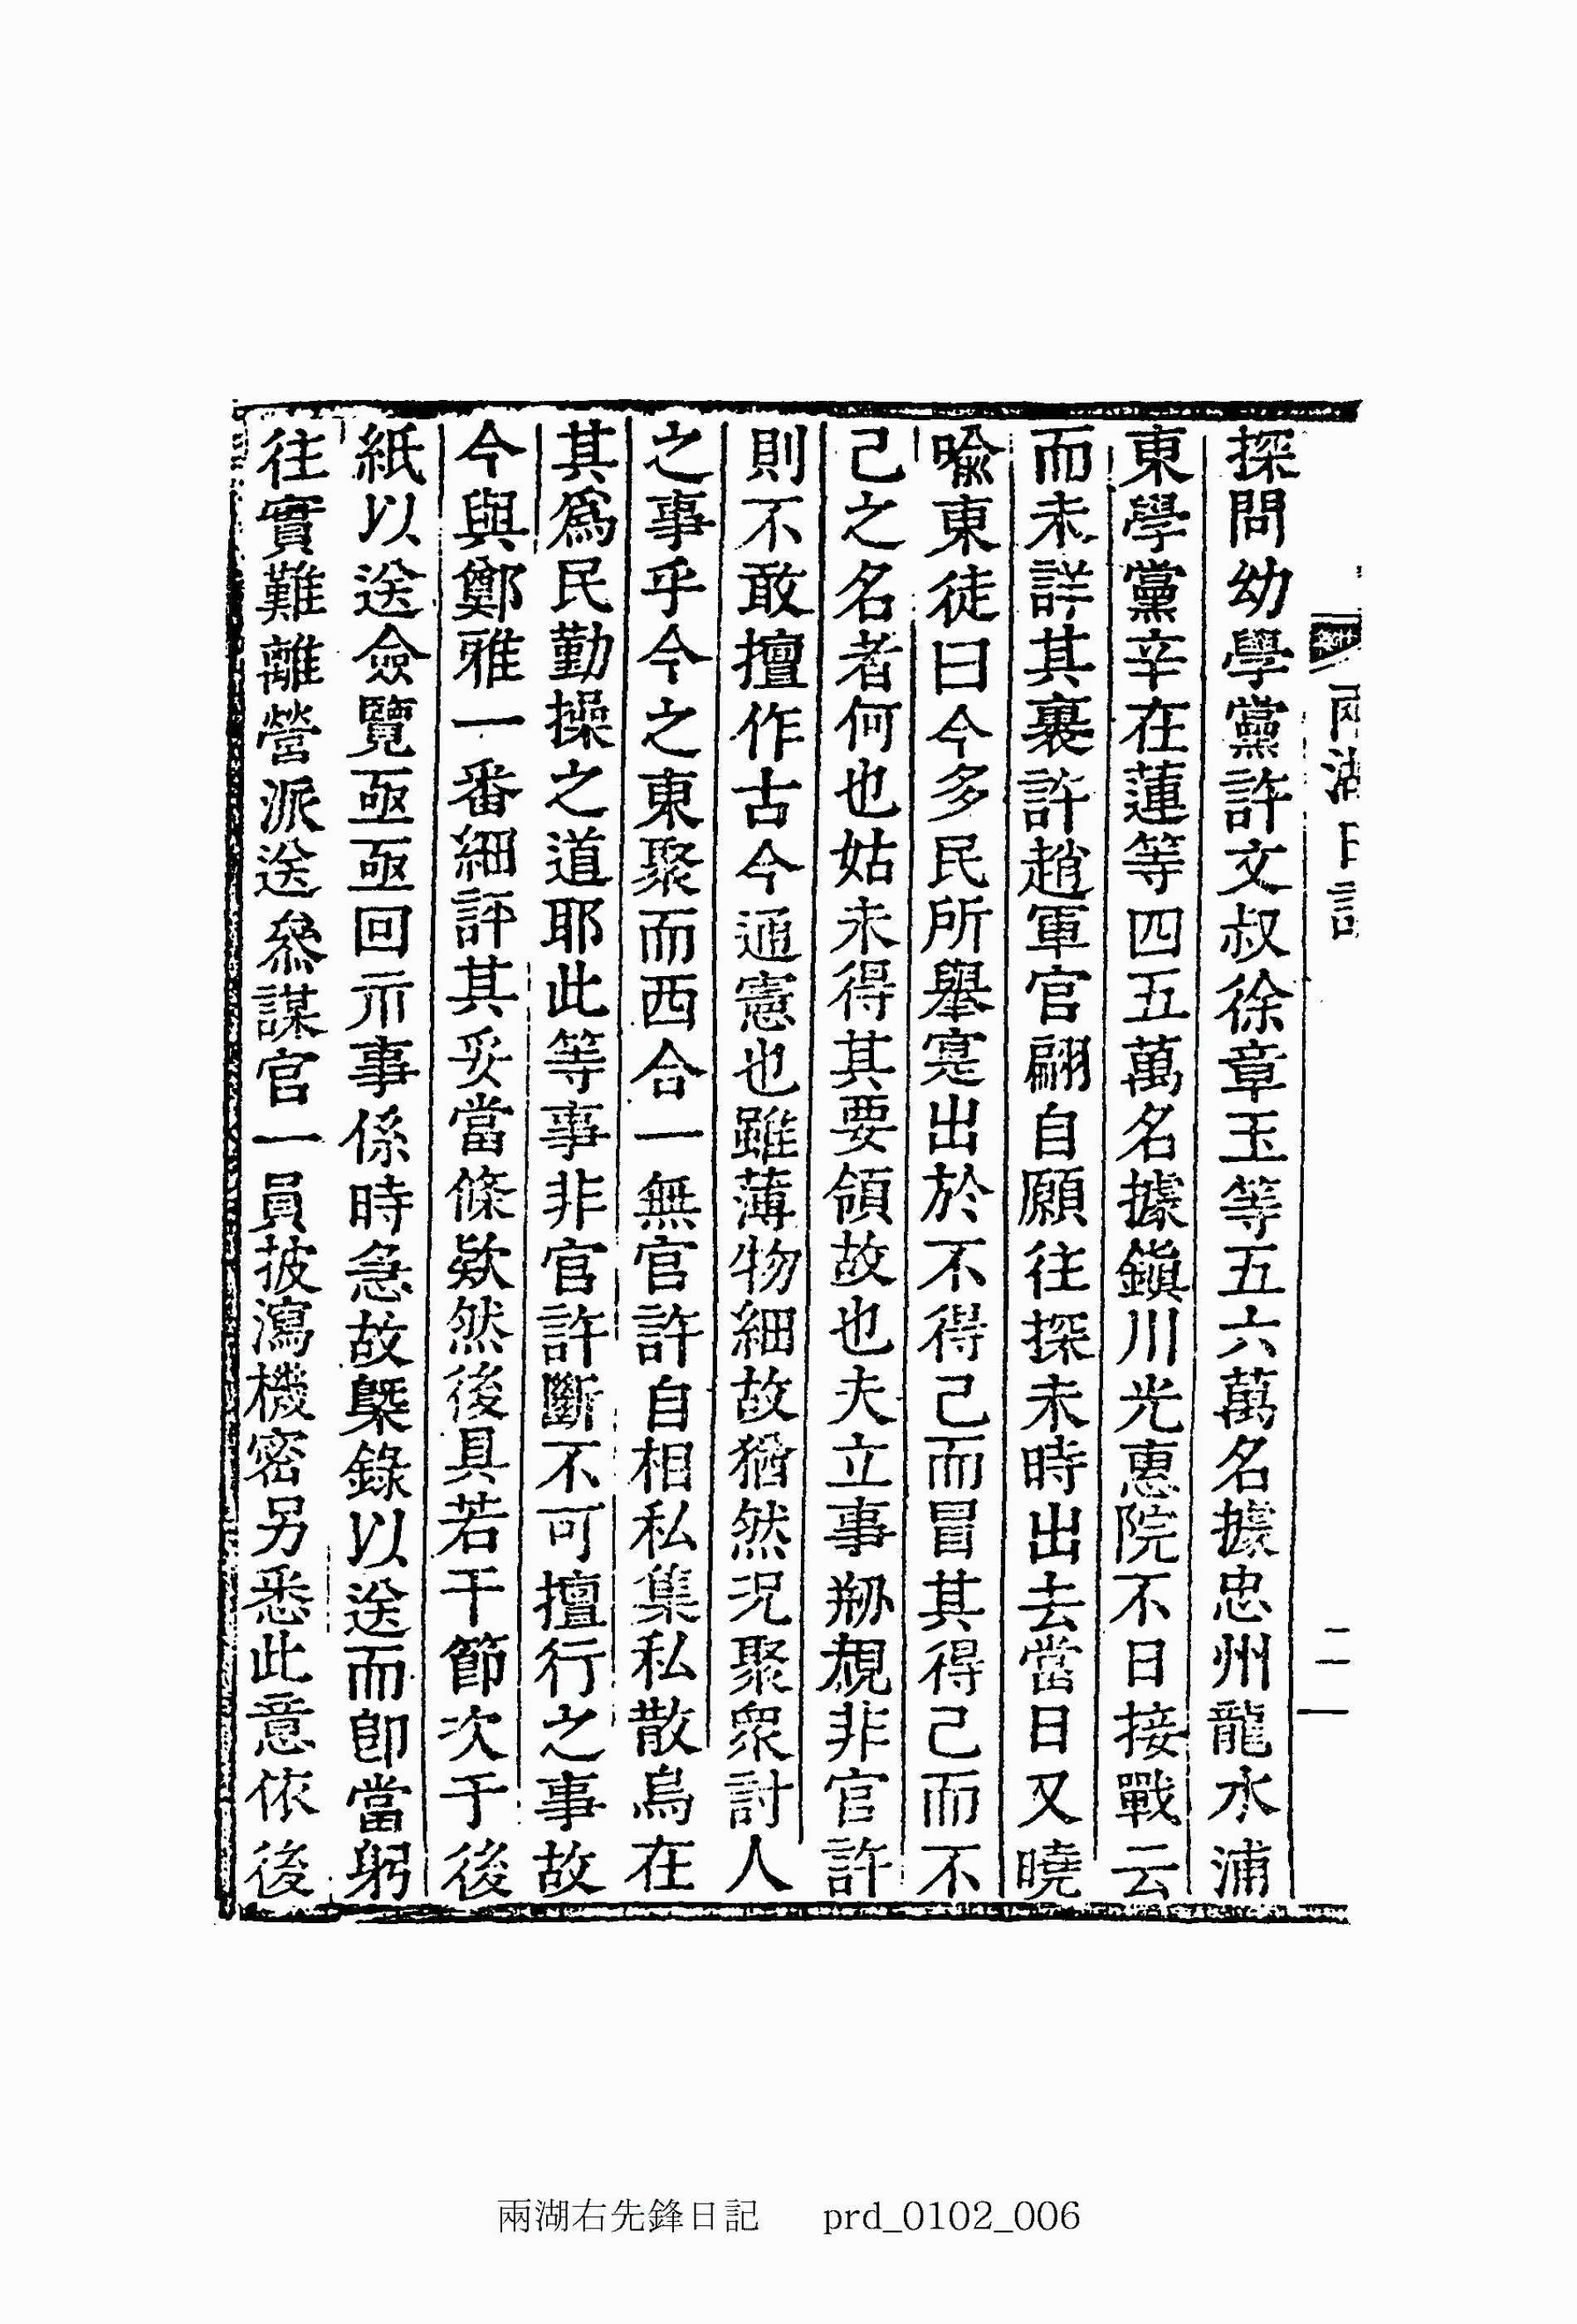 兩湖日記
二一
探問幼學黨許文叔徐章玉等五六萬名據忠州龍水浦
東學黨辛在蓮等四五萬名據鎭川光惠院不日接戰云
而未詳其裏許趙軍官翩自願往探未時出去當日又曉
喩東徒曰今多民所舉寔出於不得已而冒其得已而不
已之名者何也姑未得其要領故也夫立事刱規非官許
則不敢擅作古今通憲也雖薄物細故猶然況聚衆討人
之事乎今之東聚而西合一無官許自相私集私散烏在
其爲民勤操之道耶此等事非官許斷不可擅行之事故
今與鄭雅一番細評其妥當條欵然後具若干節次于後
紙以送僉覽亟亟回示事係時急故槩錄以送而卽當躬
往實難離營派送叅謀官一員披瀉機密另悉此意依後
兩湖右先鋒日記 prd_0102_006